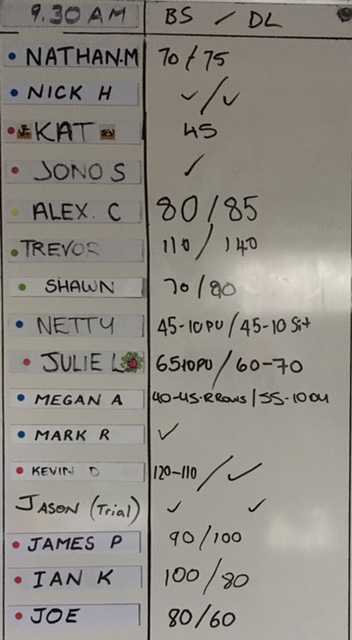 9.30 AM BS / DL
NATHAN.M 70 / 75
NICK H ✓/✓
KAT 45
JONO S ✓
ALEX. C 80/85
TREVOR 110 / 140
SHAWN 70/80
NETTY 45-10PU/45-10 Sit
JULIE L 6510PU / 60-70
MEGAN A 40-45-RROWS/55-10DU
MARK R ✓
KEVIN D 120-110 / ✓
JASON (Trial) ✓ ✓
JAMES P 90/100
IAN K 100/80
JOE 80/60